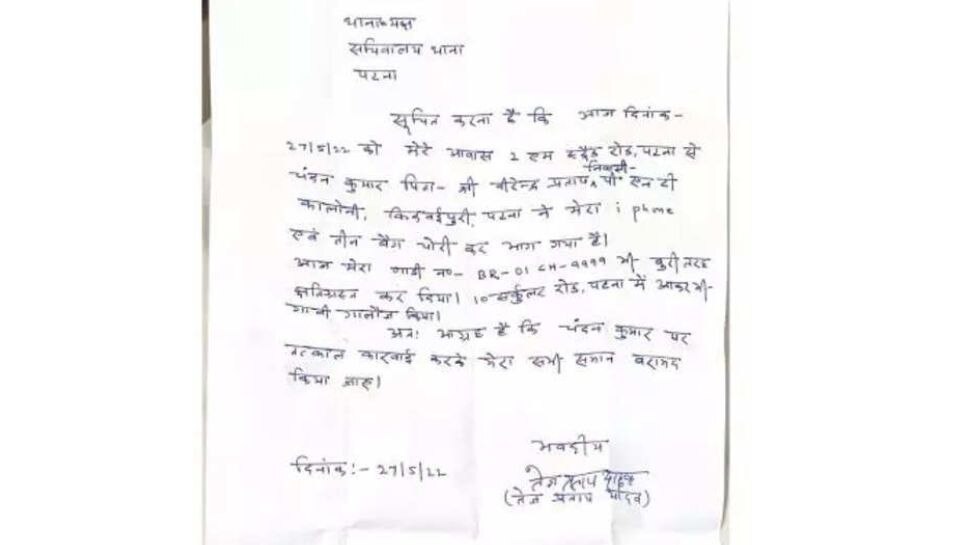 थानाध्यक्ष
सचिवालय थाना
पटना
सूचित करना है कि आज दिनांक-
27/5/22 को मेरे आवास 2 एम स्ट्रैंड रोड, पटना से
निवासी-
चंदन कुमार पिता- श्री वीरेन्द्र प्रताप, पी एन टी
कालोनी, किदवईपुरी, पटना ने मेरा i phone
एवं तीन बैग चोरी कर भाग गया है।
आज मेरा गाडी न०- BR-01 CH-9999 भी बुरी तरह
क्षतिग्रस्त कर दिया। 10 सर्कुलर रोड, पटना में आकर भी-
गाली गालौज किया।
अतः आग्रह है कि चंदन कुमार पर
तत्काल कारवाई करके मेरा सभी समान बरामद
किया जाए।
भवदीय
दिनांक:- 27/5/22
तेज प्रताप यादव
(तेज प्रताप यादव)